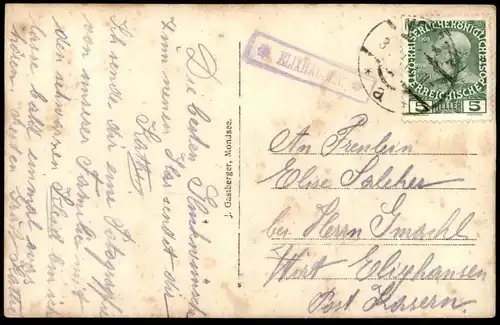 Die besten Glückwünsche
zum neuen Jahr sendet dir
Kathi
Ich sende dir eine Fotografie
von unserer Familie mit
den schwarzen Kleid bin ich
lasse bald einmal was
hören. Gruß
J. Gastberger, Mondsee.
ELIXHAUSEN
KAISERLICHE KÖNIGLICHE
ÖSTERREICHISCHE POST
5 HELLER 5
An Freulein
Elise
bei Herrn Gmachl
Wirt Elixhausen
Post Kasern.